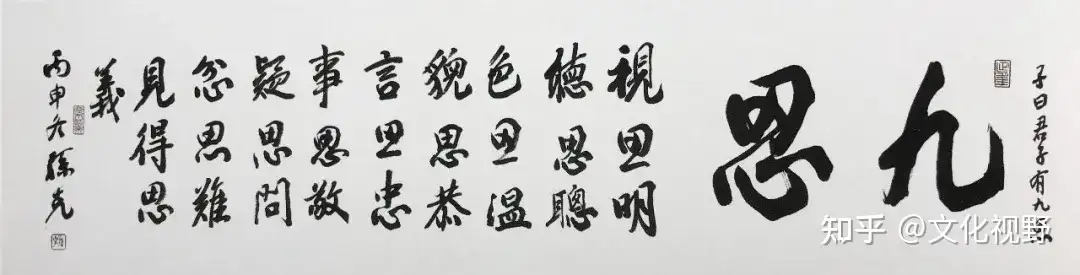 子曰君子有九思
九思
視思明
聽思聰
色思溫
貌思恭
言思忠
事思敬
疑思問
忿思難
見得思
義
丙申冬孫克
知乎 @文化视野